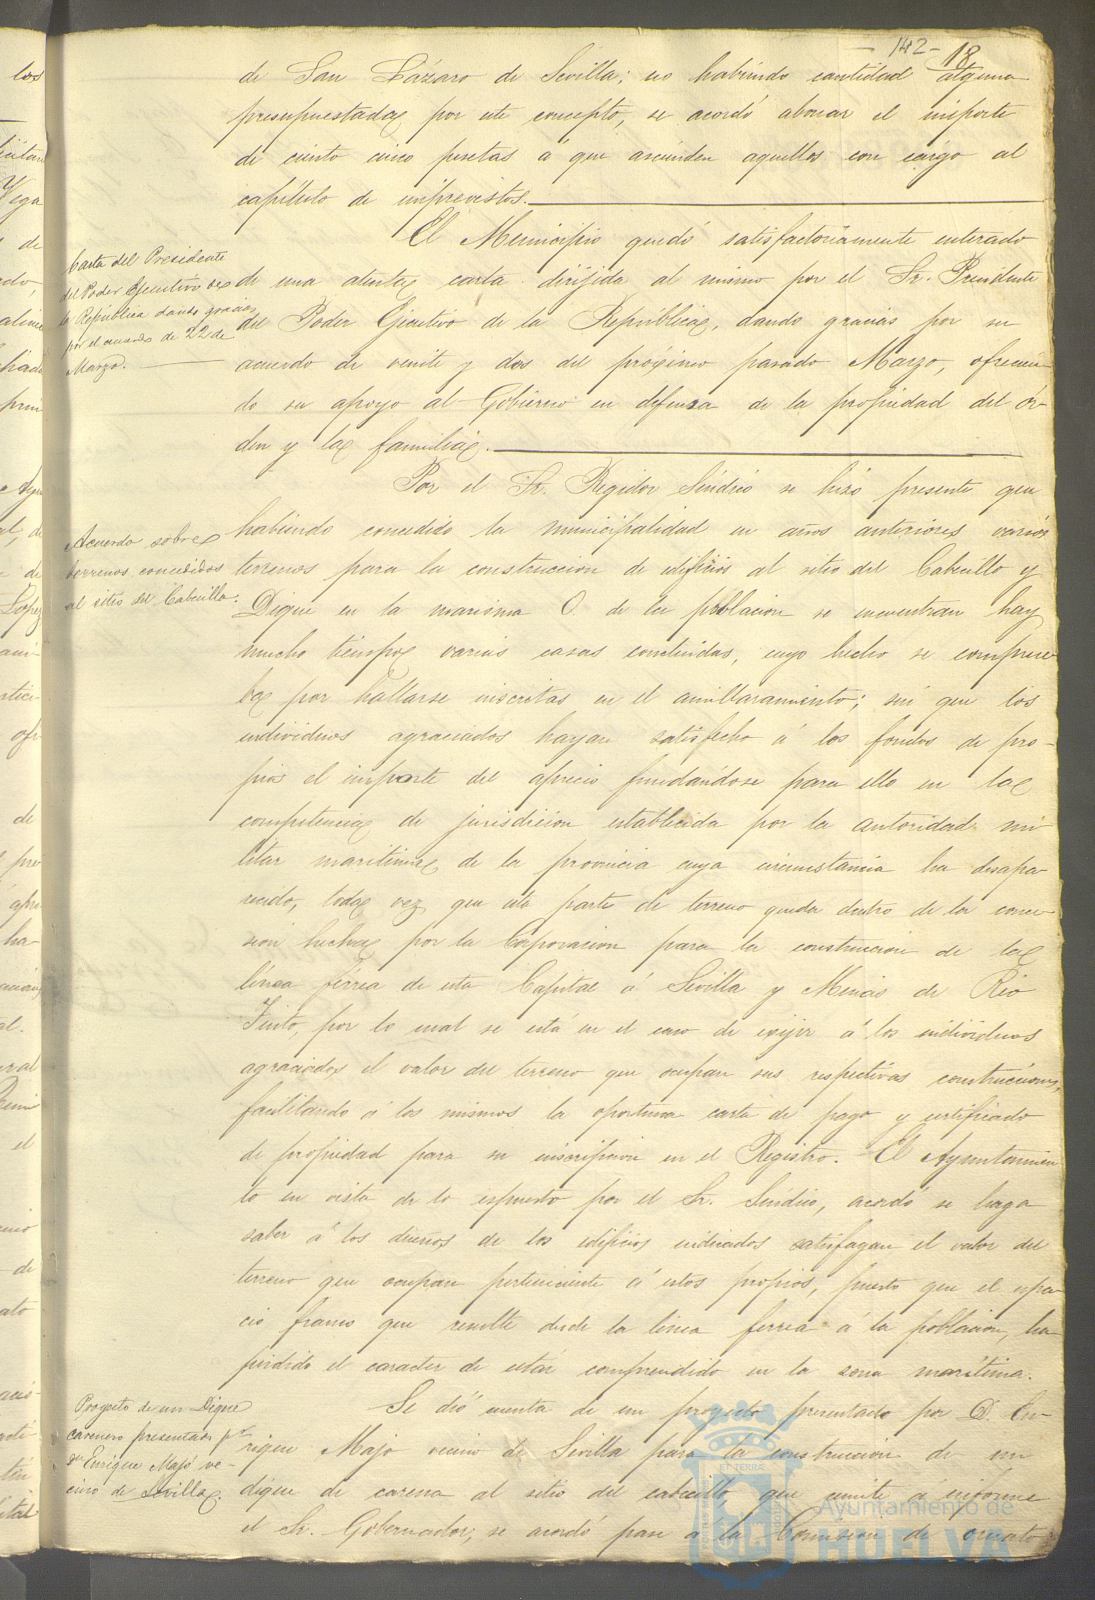 - 142 -
18
de San Lázaro de Sevilla; no habiendo cantidad alguna
presupuestada por este concepto, se acordó abonar el importe
de ciento cinco pesetas á que ascienden aquellos con cargo al
capítulo de imprevistos.
Carta del Presidente
del Poder Ejecutivo de
la República dando gracias
por el acuerdo de 22 de
Marzo.
El Municipio quedó satisfactoriamente enterado
de una atenta carta dirijida al mismo por el Sr. Presidente
del Poder Ejecutivo de la República, dando gracias por su
acuerdo de veinte y dos del próximo pasado Marzo, ofrecien-
do su apoyo al Gobierno en defensa de la propiedad del ór-
den y la familia.
Acuerdo sobre
terrenos concedidos
al sitio del Cabecillo.
Por el Sr. Regidor Sindico se hizo presente que
habiendo concedido la municipalidad en años anteriores varios
terrenos para la construccion de edificios al sitio del Cabecillo y
Dique en la marisma O. de la poblacion se encuentran hay
mucho tiempo varias casas construidas, cuyo hecho se comprue-
ba por hallarse inscritas en el amillaramiento; sin que los
individuos agraciados hayan satisfecho á los fondos de pro-
pios el importe del aprecio fundándose para ello en la
competencia de jurisdicion establecida por la autoridad mi
litar maritima de la provincia cuya circunstancia ha desapa
recido, toda vez que esta parte de terreno queda dentro de la conce-
sion hecha por la Corporacion para la construccion de la
línea férrea de esta Capital á Sevilla y Minas de Rio
Tinto, por lo cual se está en el caso de exijir á los individuos
agraciados el valor del terreno que ocupan sus respectivas construcciones,
facilitando á los mismos la oportuna carta de pago y certificado
de propiedad para su inscripcion en el Registro. El Ayuntamien
to en vista de lo espuesto por el Sr. Sindico, acordó se haga
saber á los dueños de los edificios indicados satisfagan el valor del
terreno que ocupan perteneciente á estos propios, puesto que el espa-
cio franco que resulte desde la linea ferrea á la poblacion, ha
perdido el caracter de estar comprendido en la zona marítima.
Proyecto de un Dique
carenero presentado pr.
Dn. Enrique Majó ve-
cino de Sevilla.
Se dió cuenta de un proyecto presentado por D. En-
rique Majo vecino de Sevilla para la construccion de un
dique de carena al sitio del cabecillo que remite á informe
el Sr. Gobernador; se acordó pase á la Comision de ornato
Ayuntamiento de
HUELVA